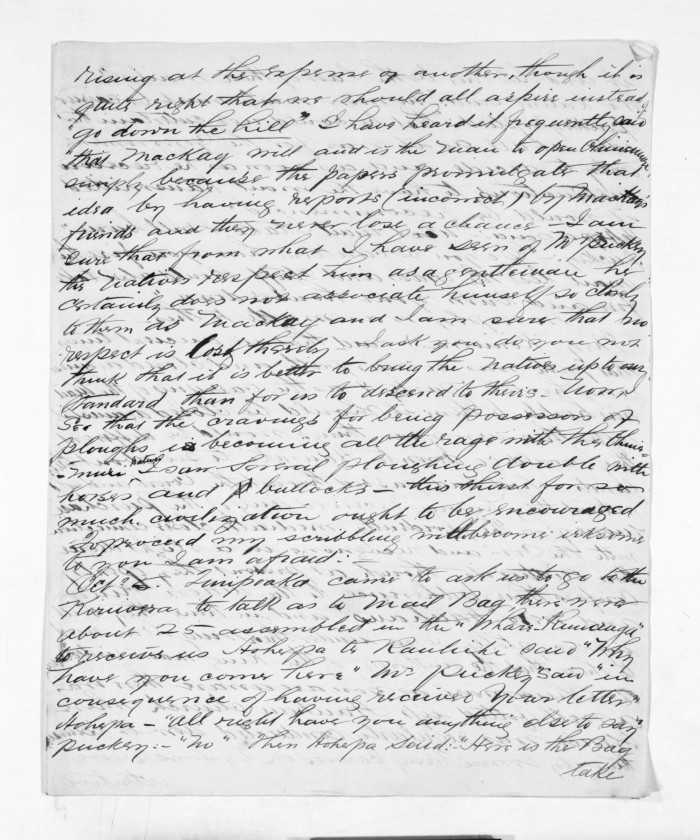 rising at the expense of another, though it is
quite right that we should all aspire instead
"go down the hill" I have heard it frequently said
that Mackay will and is the man to open Ohinemuri
simply because the papers promulgate that
idea by having reports (incorrect) by Mackays
friends and they never lose a chance - I am
sure that from what I have seen of Mr Puckey,
the Natives respect him as a gentleman he
certainly does not associate himself so closely
to them as Mackay and I am sure that no
respect is lost thereby I ask you do you not
think that it is better to bring the Natives up to our
Standard than for us to descend to theirs - Now, I
see that the cravings for being possessors of
ploughs is becoming all the rage with the Ohine-
-muri Natives I saw several ploughing double with
horses and bullocks - this thirst for so
much civilization ought to be encouraged
To proceed my scribbling will become irksome
to you I am afraid:-
Oct. came to ask us to go to the
to talk as to Mail Bag, there were
about 25 assembled in the "Whare Runanga"
to receive us Aohepa te Rauhihi said "Why
have you come here" Mr Puckey said "in
consequence of having received your letter"
Aohepa - "all right have you anything else to say"
Puckey:- "No" Then Aohepa said:- "Here is the Bag
take